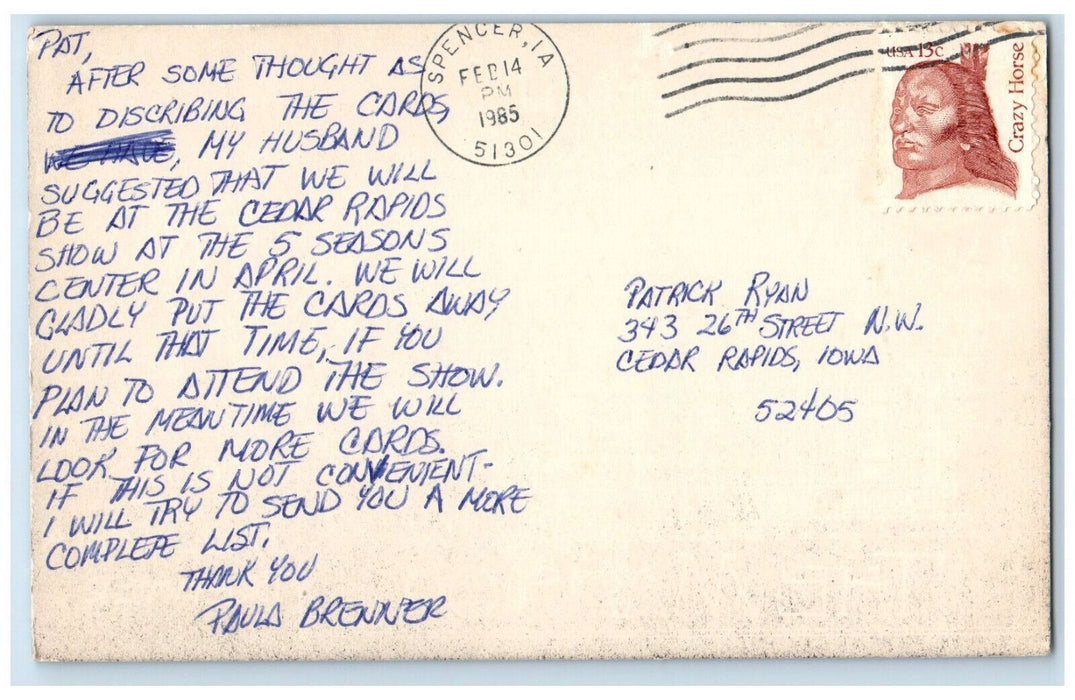 PAT,
AFTER SOME THOUGHT AS
TO DISCRIBING THE CARDS,
WE HAVE, MY HUSBAND
SUGGESTED THAT WE WILL
BE AT THE CEDAR RAPIDS
SHOW AT THE 5 SEASONS
CENTER IN APRIL. WE WILL
GLADLY PUT THE CARDS AWAY
UNTIL THAT TIME, IF YOU
PLAN TO ATTEND THE SHOW.
IN THE MEANTIME WE WILL
LOOK FOR MORE CARDS.
IF THIS IS NOT CONVENIENT-
I WILL TRY TO SEND YOU A MORE
COMPLETE LIST.
THANK YOU
PAULA BRENNER
SPENCER, IA
FEB 14
PM
1985
51301
USA 13c
Crazy Horse
PATRICK RYAN
343 26TH STREET N.W.
CEDAR RAPIDS, IOWA
52405